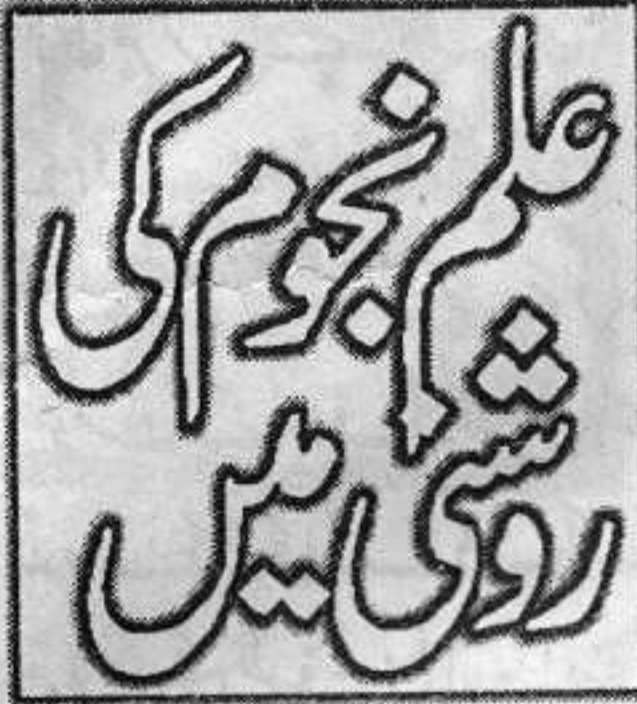 علم نجوم کی
روشنی میں